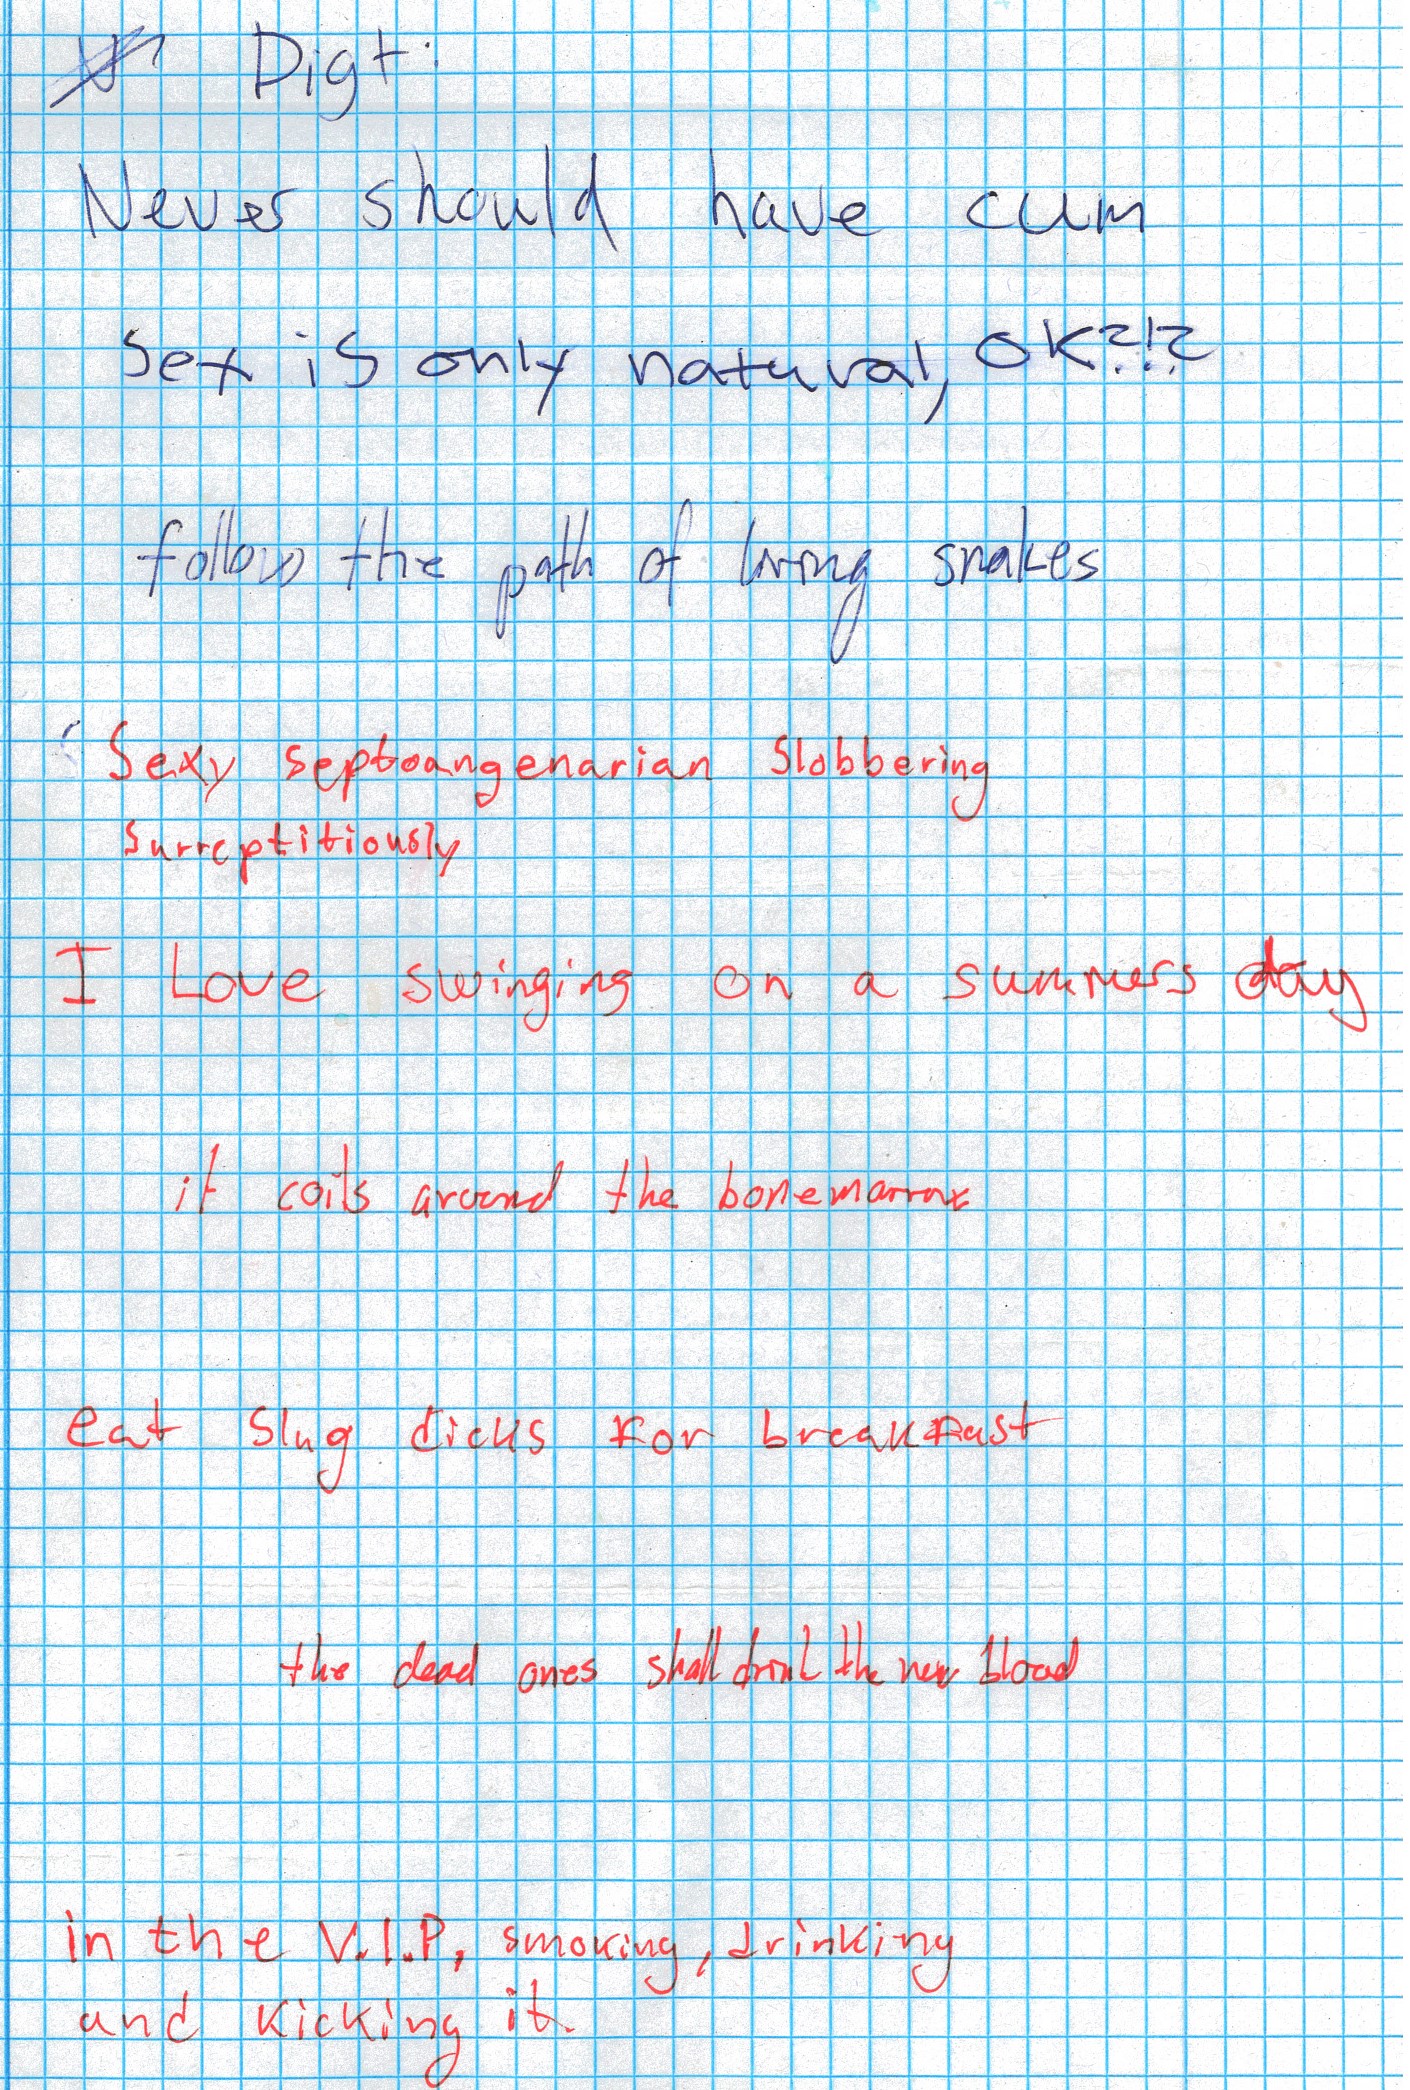 Digt:
Never should have cum
Sex is only natural, OK?!?
follow the path of living snakes
Sexy septoangenarian Slobbering
Surreptitiously
I Love swinging on a summers day
it coils around the bonemarrow
eat slug dicks for breakfast
the dead ones shall drink the new blood
in the V.I.P, smoking, drinking
and kicking it.